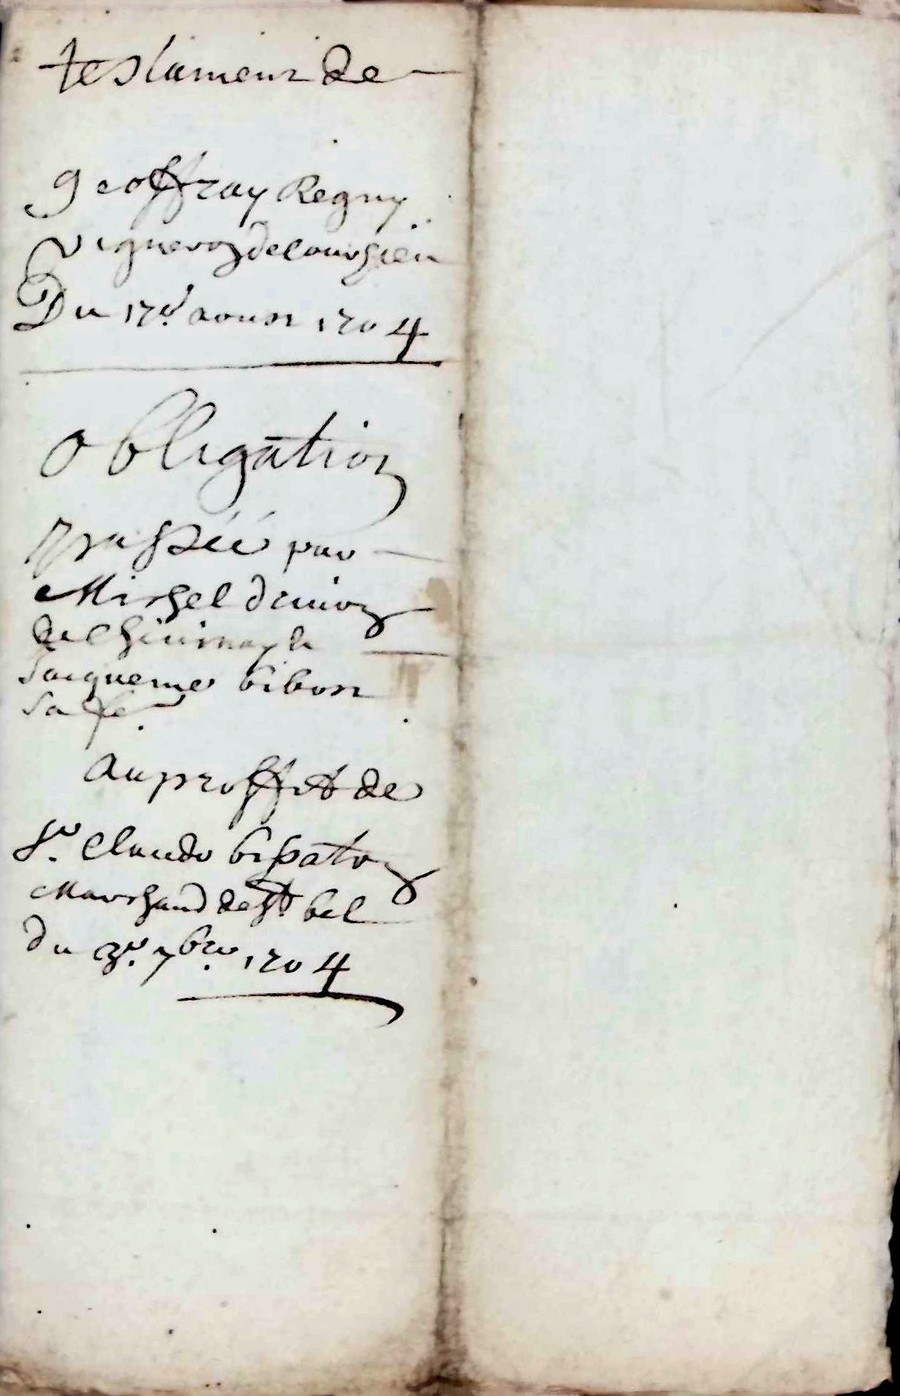 testament de
geoffray Regny
vigneron de courzieu
Du 17e aoust 1704
obligation
passéé par
Michel
Jacqueme bibost
sa fe.
au proffit de
Sr. Claude bissaton
Marchand de St bel
du 3e. 7bre. 1704